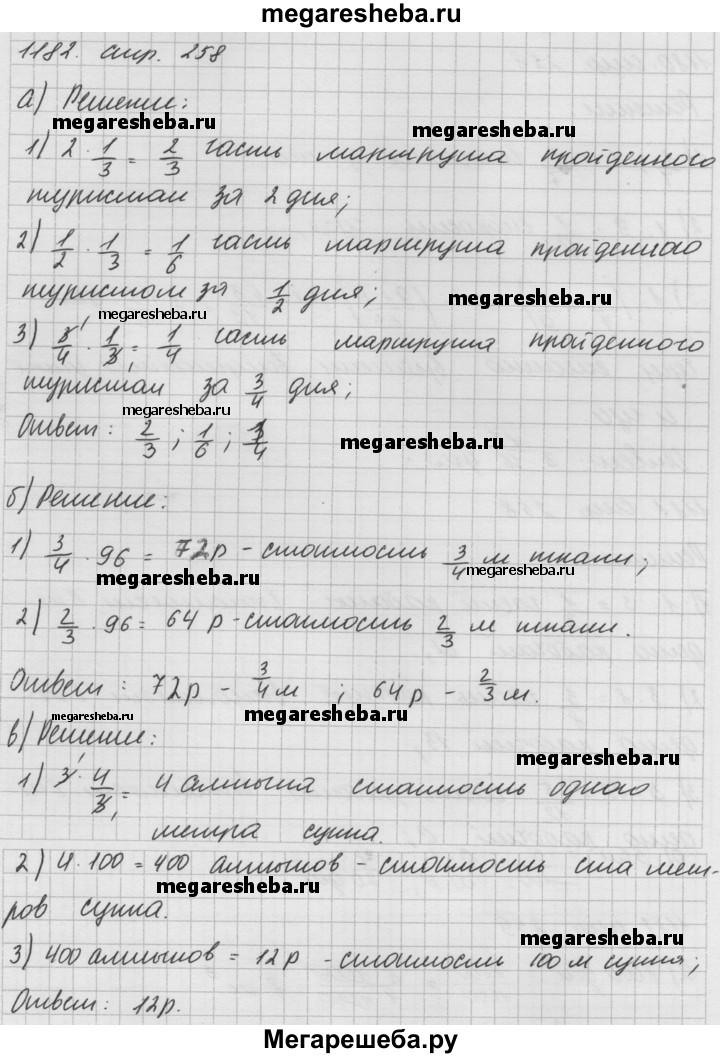 megaresheba.ru
1182. стр. 258
а) Решение:
megaresheba.ru megaresheba.ru
1) 2 · 1/3 = 2/3 часть маршрута пройденного
туристам за 2 дня;
2) 1/2 · 1/3 = 1/6 часть маршрута пройденного
туристом за 1/2 дня;
megaresheba.ru megaresheba.ru
3) 3/4 · 1/3 = 1/4 часть маршрута пройденного
туристам за 3/4 дня;
megaresheba.ru
Ответ: 2/3 ; 1/6 ; 1/4
megaresheba.ru
б) Решение:
1) 3/4 · 96 = 72р - стоимость 3/4 м ткани;
megaresheba.ru megaresheba.ru
2) 2/3 · 96 = 64 р - стоимость 2/3 м ткани.
Ответ: 72р - 3/4 м ; 64р - 2/3 м.
megaresheba.ru megaresheba.ru
в) Решение:
megaresheba.ru
1) 3 · 4/3 = 4 алтына стоимость одного
метра сукна.
2) 4 · 100 = 400 алтынов - стоимость ста мет-
megaresheba.ru
ров сукна.
megaresheba.ru
3) 400 алтынов = 12р - стоимость 100 м сукна;
Ответ: 12р.
Мегарешеба.ру